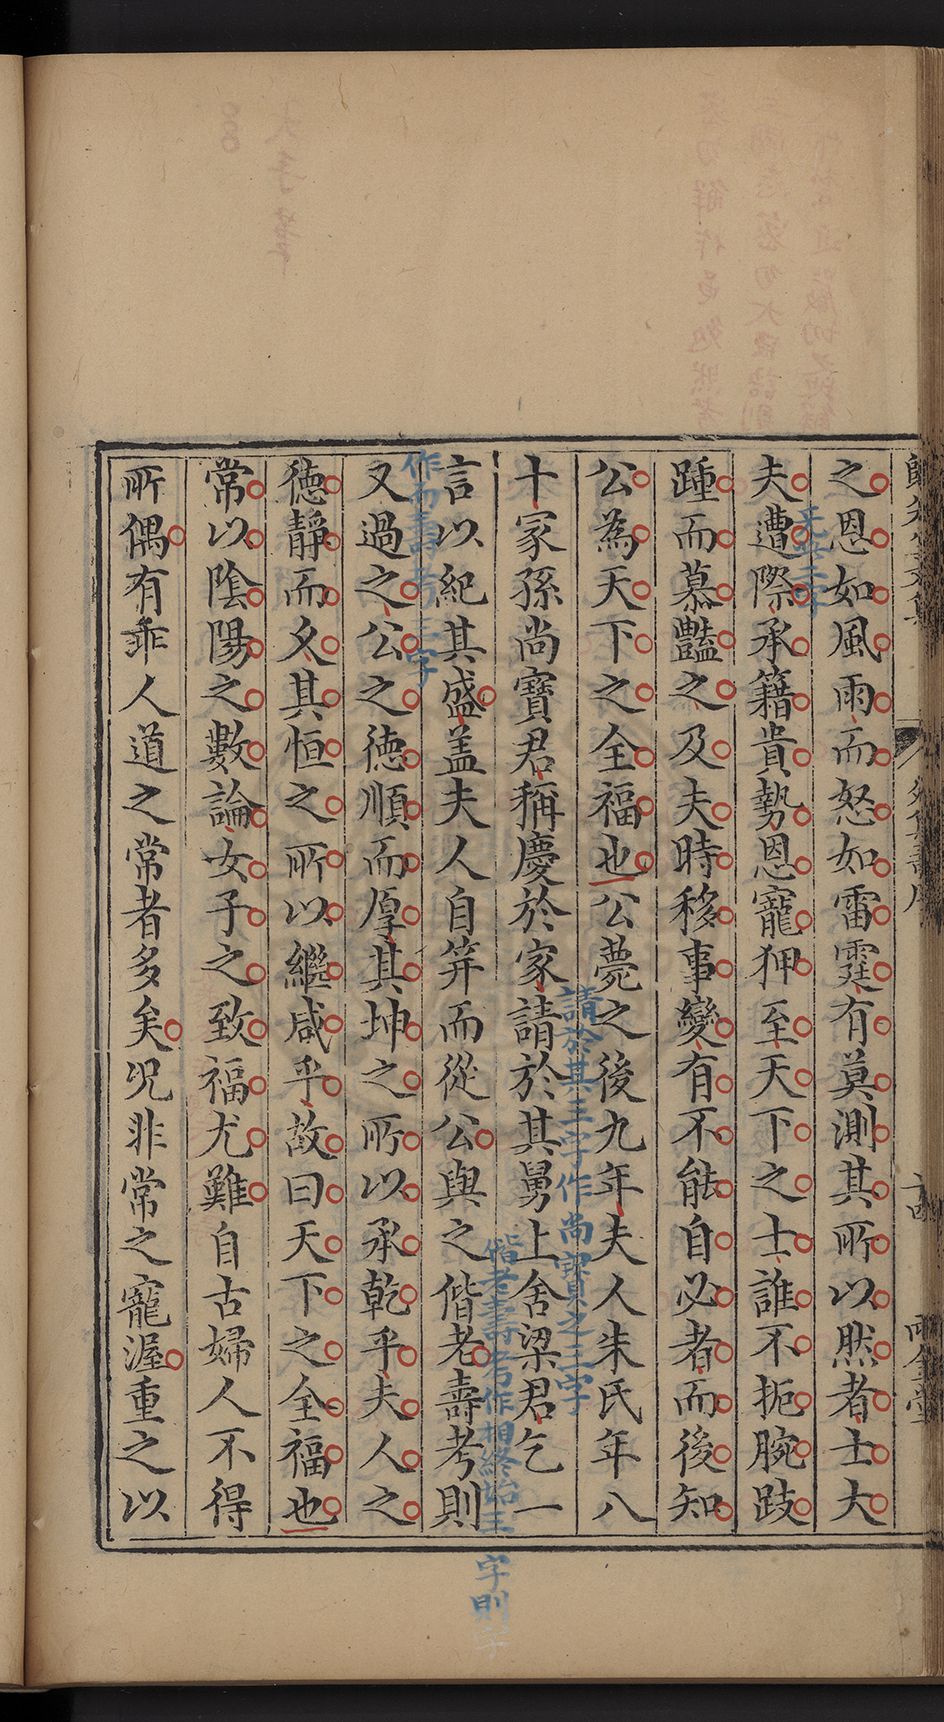 之恩如風雨而怒如雷霆有莫測其所以然者士大
夫遭際承籍貴勢恩寵狎至天下之士誰不扼腕跂
踵而慕豔之及夫時移事變有不能自必者而後知
公為天下之全福也公薨之後九年夫人朱氏年八
請於其三字作尚寶之三字
十冢孫尚寶君稱慶於家請於其舅上舍梁君乞一
偕老壽考作相終始三字則字
言以紀其盛盖夫人自筓而從公與之偕老壽考則
作而壽考三字
又過之公之德順而厚其坤之所以承乾乎夫人之
德靜而久其恒之所以繼咸乎故曰天下之全福也
常以陰陽之數論女子之致福尤難自古婦人不得
所偶有乖人道之常者多矣况非常之寵渥重之以